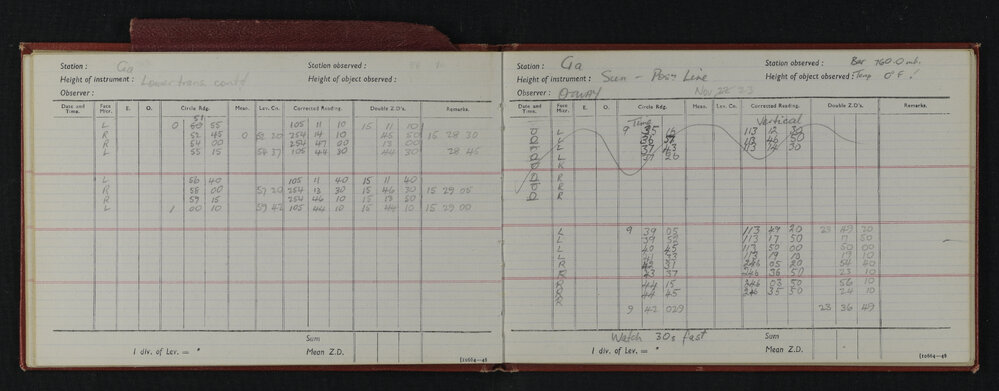 Station : Ga Station observed :
Height of instrument : Lower trans. contd Height of object observed :
Observer :
Date and Time. Face Micr. E. O. Circle Rdg. Mean. Lev. Co. Corrected Reading. Double Z.D's. Remarks.
51
L 0 50 55 105 11 10 15 11 10
R 52 45 0 53 20 254 14 10 45 50 15 28 30
R 54 00 254 47 00 13 00
L 55 15 54 37 105 44 30 44 30 28 45
L 56 40 105 11 40 15 11 40
R 58 00 57 20 254 13 30 15 46 30 15 29 05
R 59 15 254 46 10 15 13 50
L 1 00 10 59 42 105 44 10 15 44 10 15 29 00
Sum
1 div. of Lev. = " Mean Z.D.
[10664—48
Station : Ga Station observed : Bar 760.0 mb.
Height of instrument : Sun - Posn Line Height of object observed : Temp 0°F !
Observer : Nov 22 23
Date and Time. Face Micr. E. O. Circle Rdg. Mean. Lev. Co. Corrected Reading. Double Z.D's. Remarks.
Time Vertical
L 9 35 16 113 12 30
L 36 113 46 50
L 37 43 113 14 30
L 26
R
R
R
R
L 9 39 05 113 49 20 23 49 20
L 39 52 113 17 50 17 50
L 40 45 113 50 00 50 00
L 41 33 113 19 10 19 10
R 42 37 246 05 20 54 40
R 43 37 246 36 50 23 10
R 44 15 246 03 50 56 10
R 44 45 246 35 50 24 10
R
9 42 029 23 36 49
Watch 30s fast Sum
1 div. of Lev. = " Mean Z.D.
[10664—48